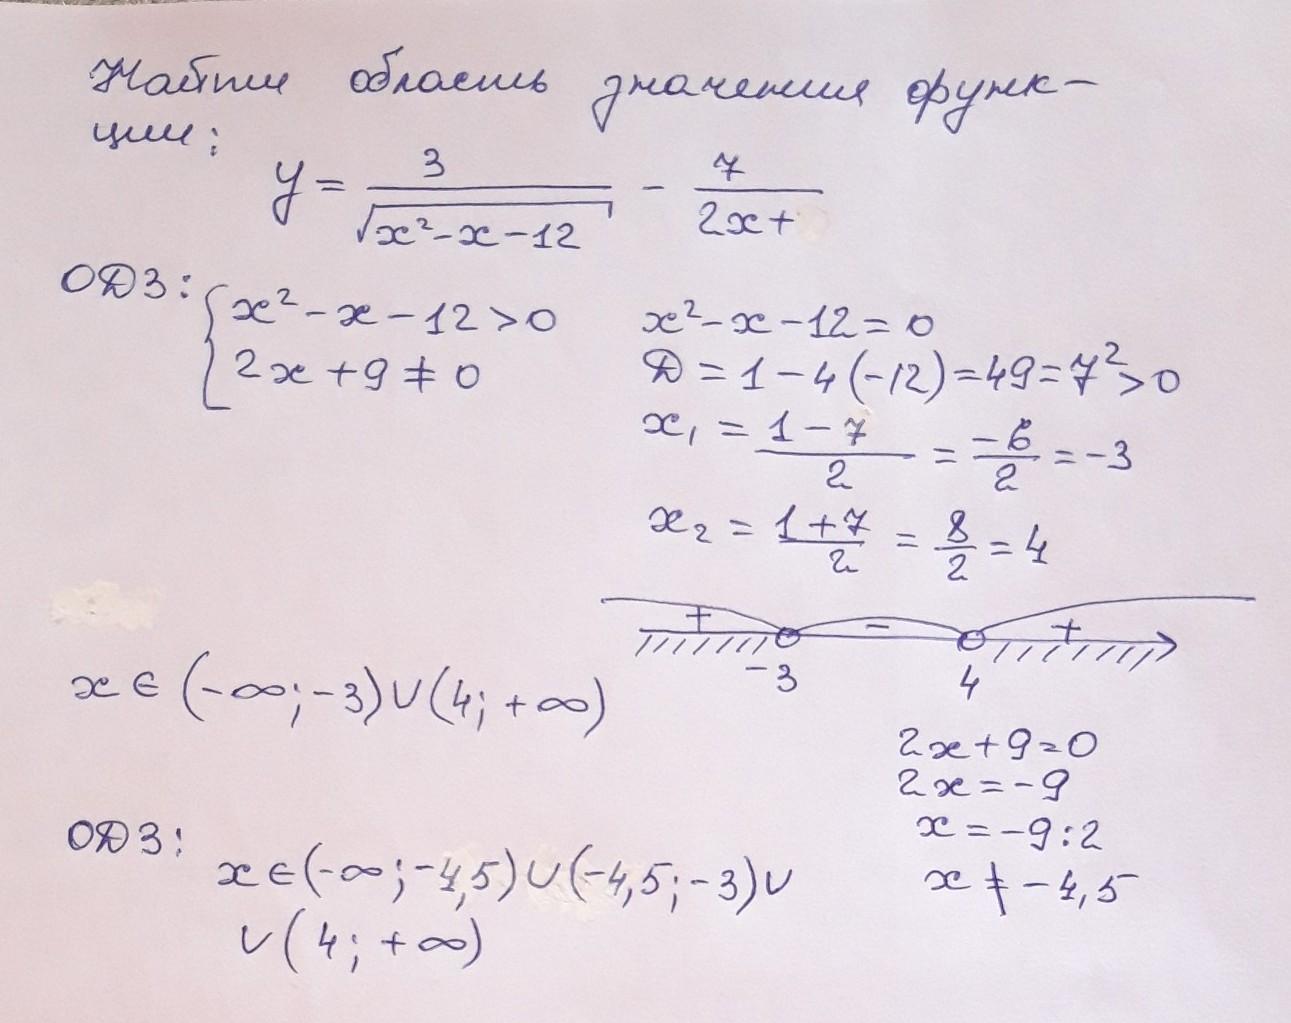 Найти область значения функ-
ции:
y = 3/√(x²-x-12) - 7/(2x+
ОДЗ: { x²-x-12>0
2x+9≠0
x²-x-12=0
Д=1-4(-12)=49=7²>0
x₁ = (1-7)/2 = -6/2 = -3
x₂ = (1+7)/2 = 8/2 = 4
+ - +
-3 4
x∈(-∞;-3)∪(4;+∞)
2x+9=0
2x=-9
x=-9:2
x≠-4,5
ОДЗ:
x∈(-∞;-4,5)∪(-4,5;-3)∪
∪(4;+∞)